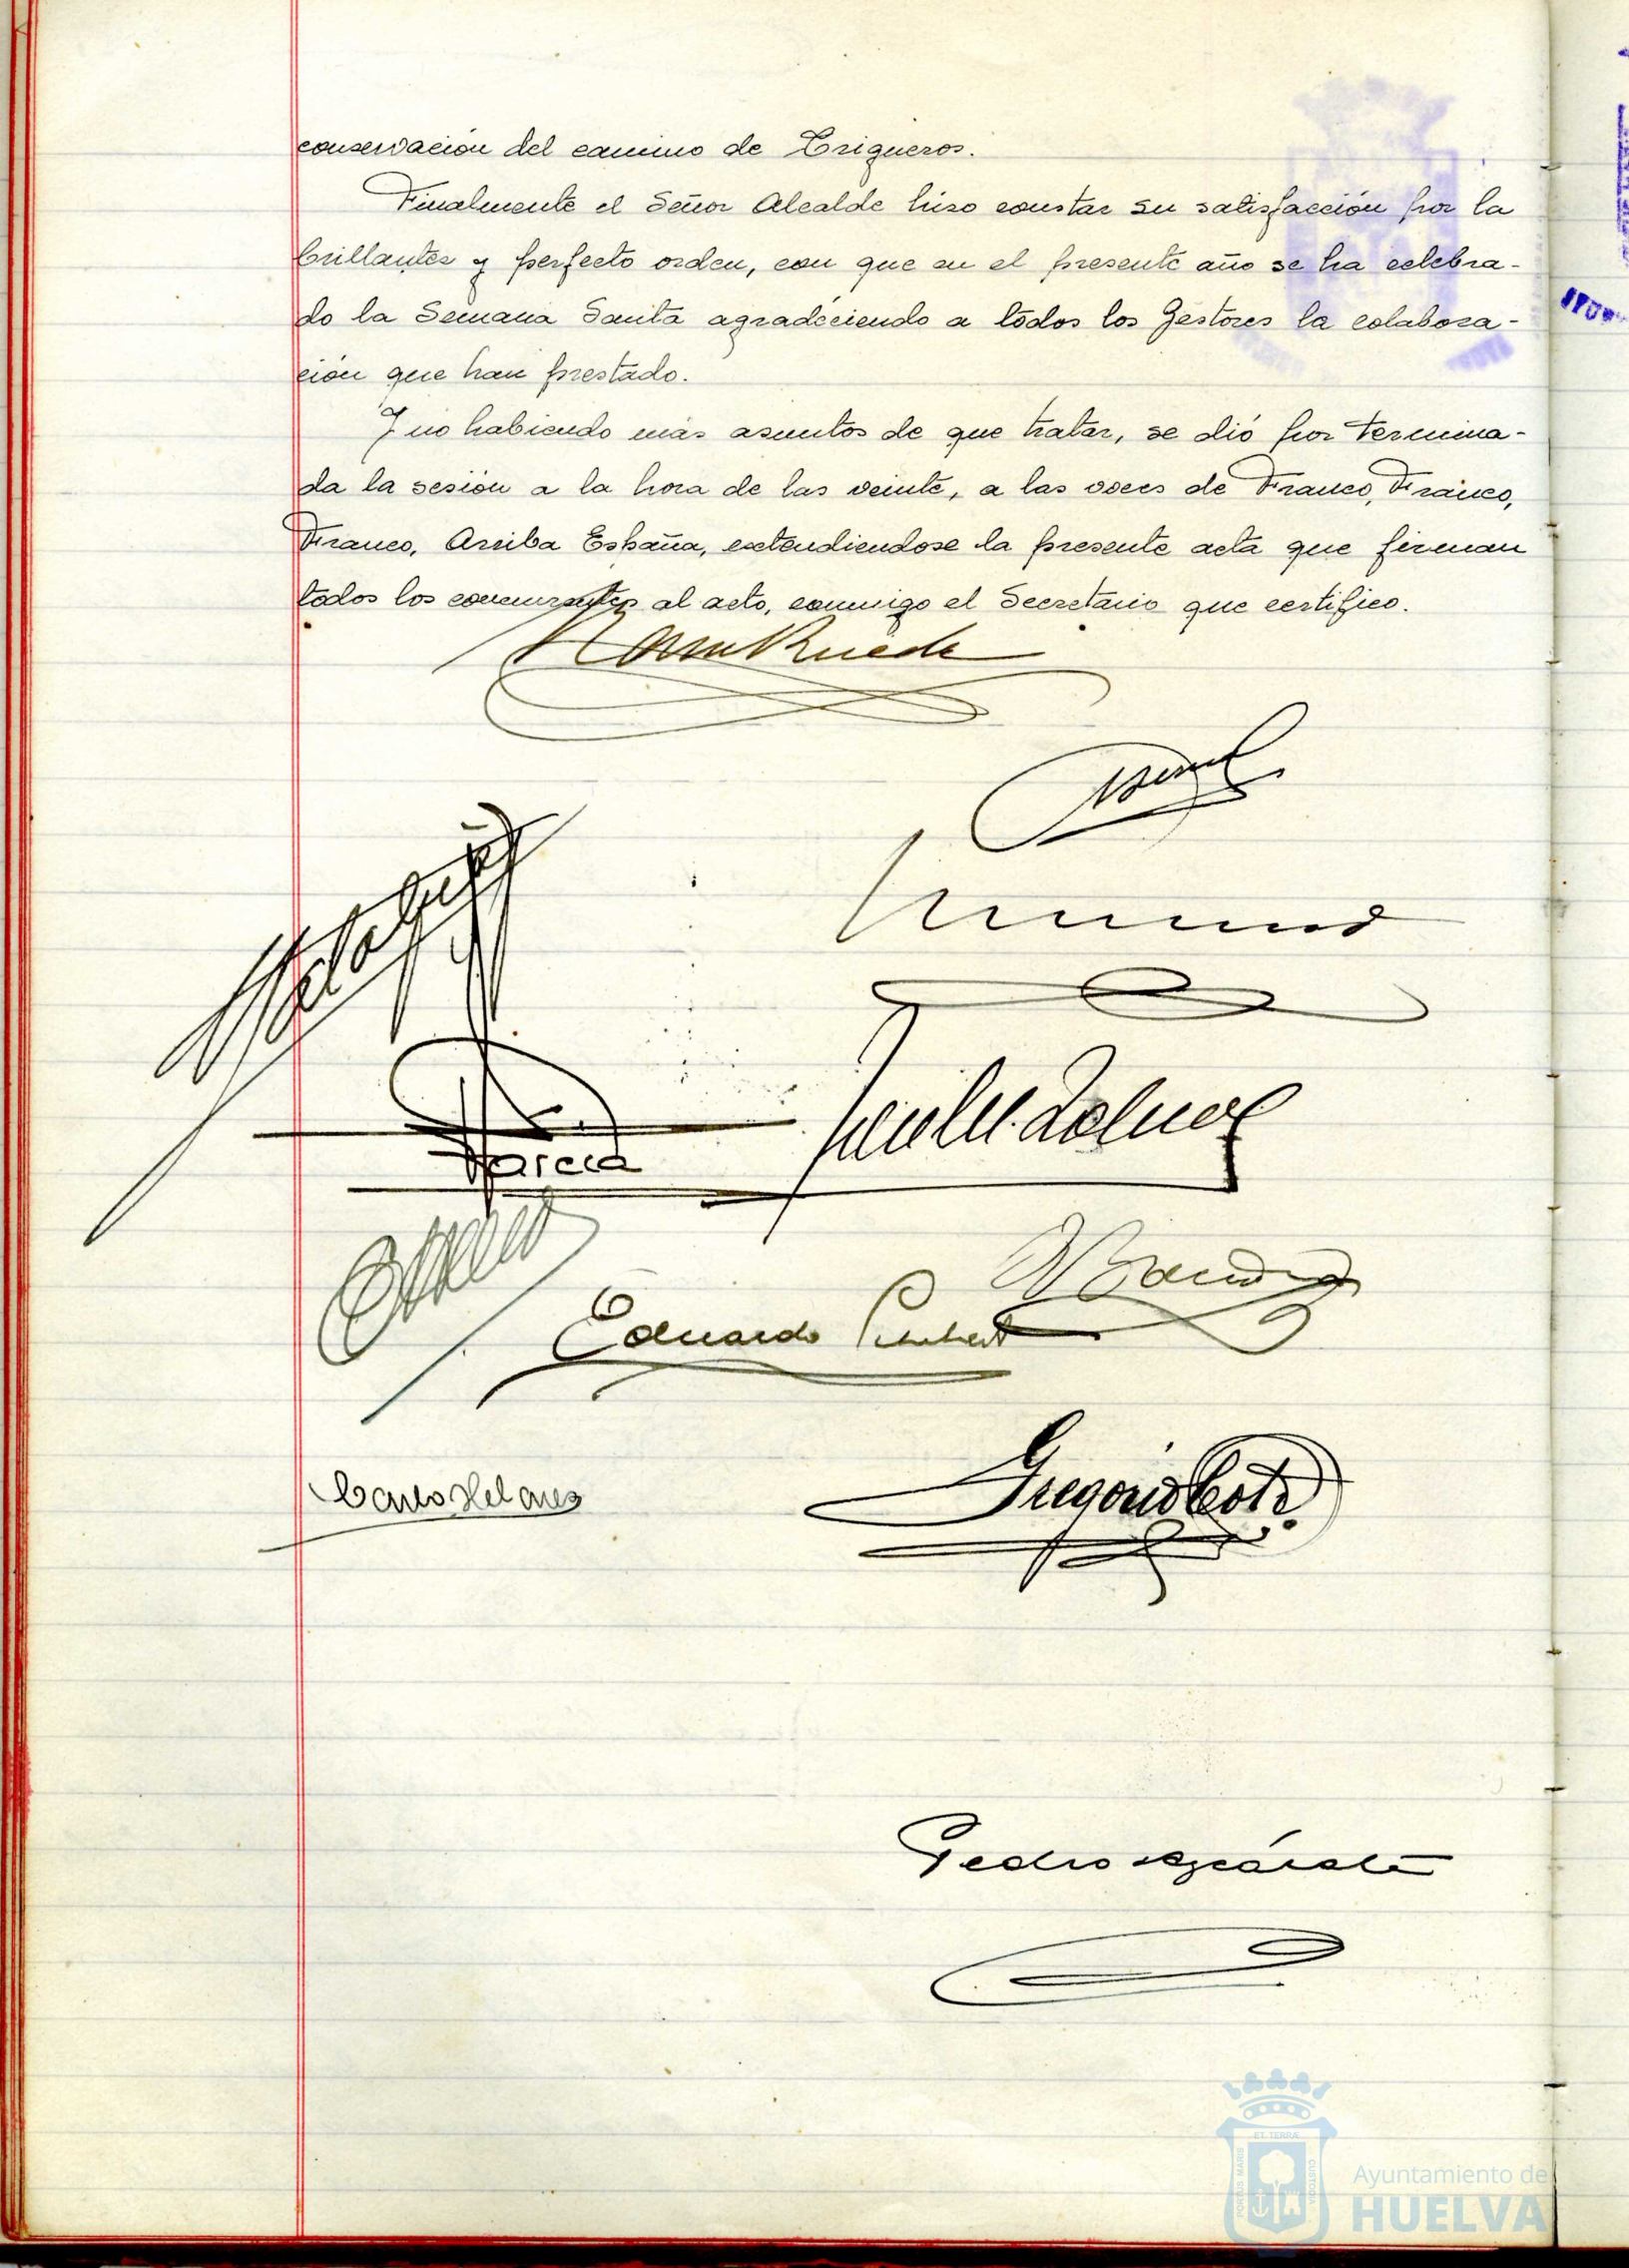 conservación del camino de Trigueros.
Finalmente el Señor Alcalde hizo constar su satisfacción por la
brillantes y perfecto orden, con que en el presente año se ha celebra-
do la Semana Santa agradeciendo a todos los Gestores la colabora-
ción que han prestado.
Y no habiendo más asuntos de que tratar, se dió por termina-
da la sesión a la hora de las veinte, a las voces de Franco, Franco,
Franco, Arriba España, extendiendose la presente acta que firman
todos los concurrentes al acto, conmigo el Secretario que certifico.
García
Eduardo
Gregorio
Pedro
PORTUS MARIS
ET TERRÆ
CUSTODIA
Ayuntamiento de
HUELVA